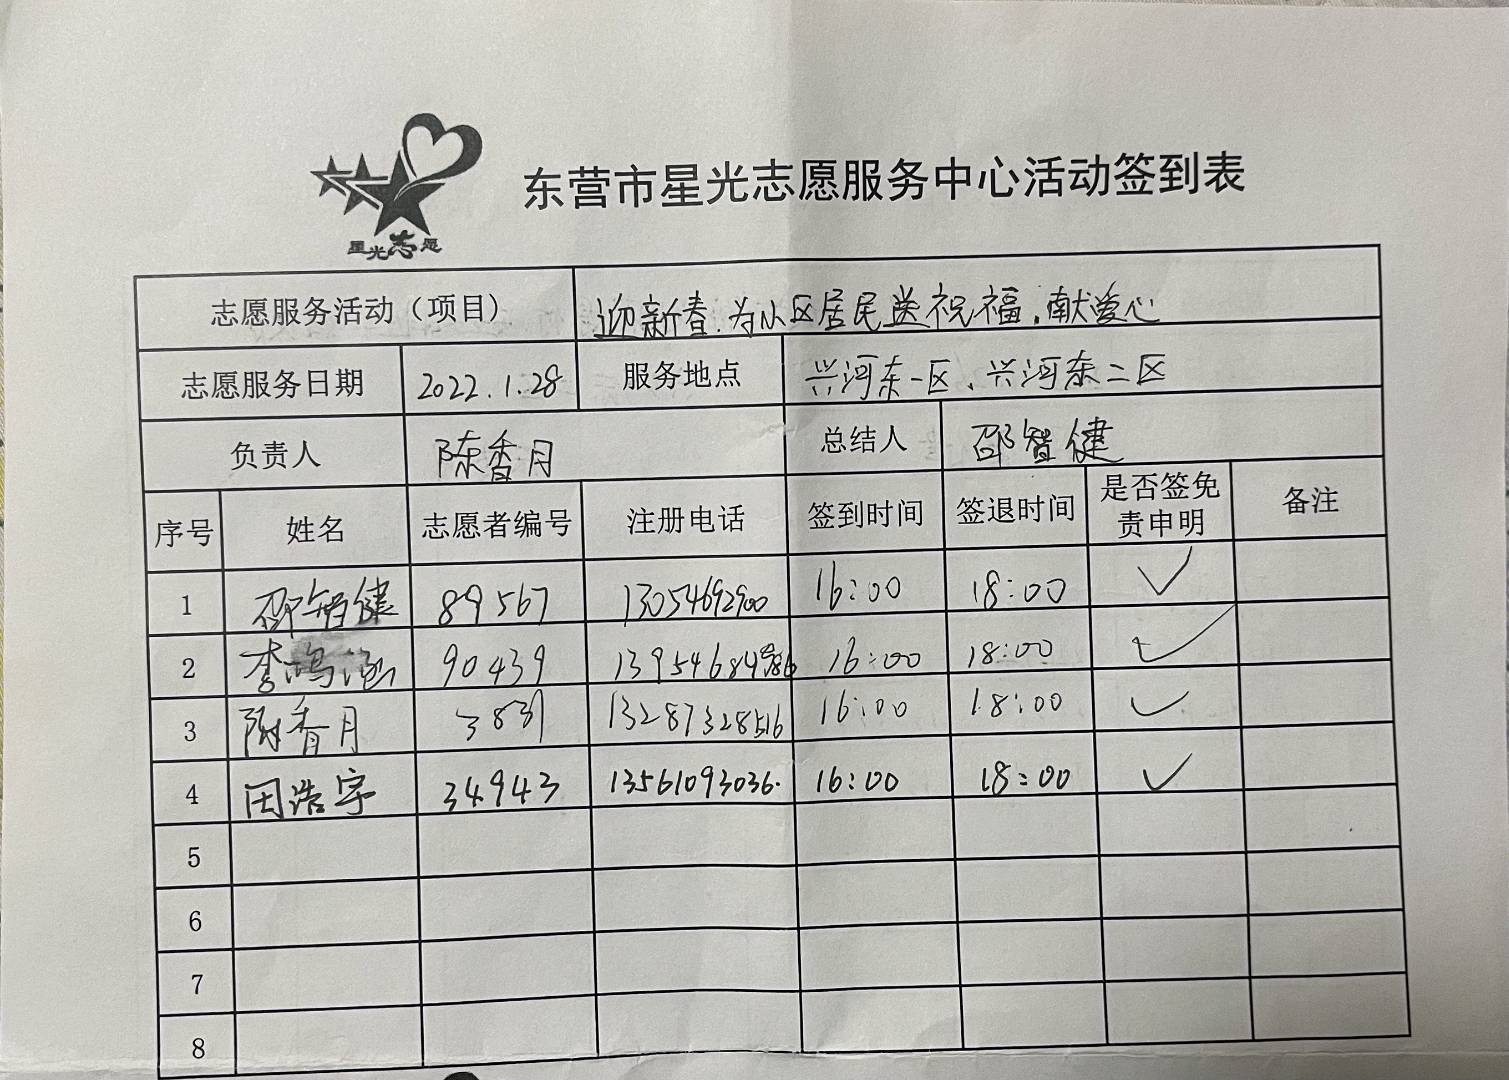 星光志愿
东营市星光志愿服务中心活动签到表
志愿服务活动（项目） 迎新春.为小区居民送祝福.献爱心
志愿服务日期 2022.1.28 服务地点 兴河东一区、兴河东二区
负责人 陈香月 总结人 邵智健
序号 姓名 志愿者编号 注册电话 签到时间 签退时间 是否签免责申明 备注
1 邵智健 89567 13054692900 16:00 18:00 ✓
2 李鸿 90439 16:00 18:00 ✓
3 陈香月 3831 13287328516 16:00 18:00 ✓
4 田浩宇 34943 13561093036. 16:00 18:00 ✓
5
6
7
8